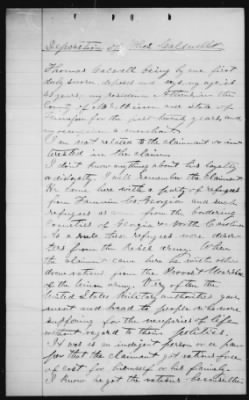 Deposition of Thos Caldwell
Thomas Caldwell being by me first
duly sworn deposes and says my age is
years, my residence Athens in the
County of McMinn and State of
Tennessee for the past years and
my occupation a merchant.
I am not relation to the claimant or in
terested in the claim.
I don't know anything about his loyalty
or disloyalty. I well remember the claimant
He came here with a party of refugees
from Fannin Co Georgia and such
refugees as came from the bordering
counties of Georgia & North Carolina
as a rule these refugees were deser
ters from the Rebel army. When
the claimant came here he with others
drew rations from the Provost Marshal
of the Union army. Very often the
United States Military authorities gave
meat and bread to people who were
suffering for the necessaries of life
without regard to their politics.
It was as an indigent person or a pau
per that the claimant got rations free
of cost for himself or his family.
I know he got the rations because